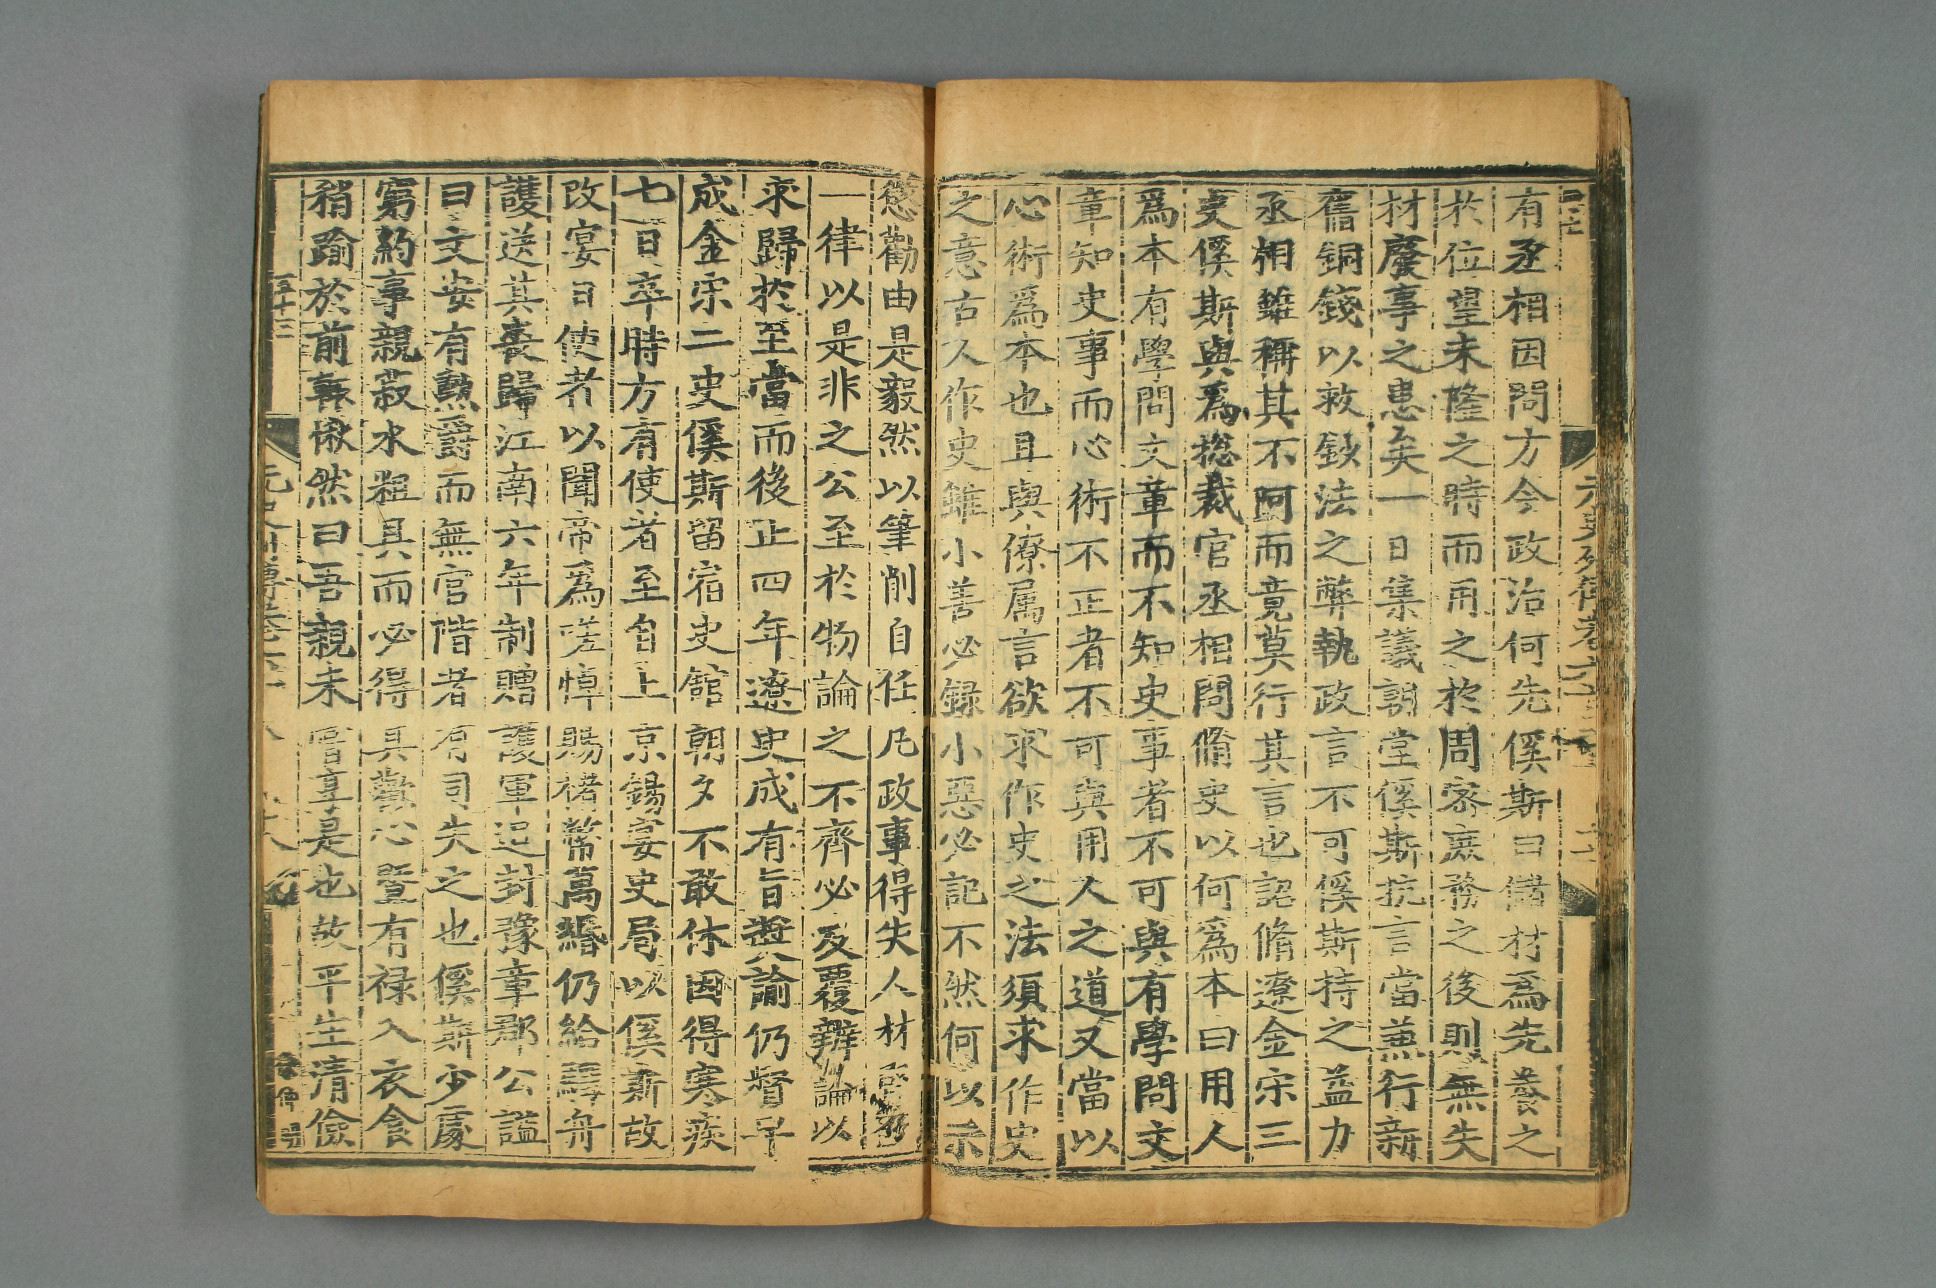 有丞相因問方今政治何先傒斯曰儲材爲先養之
於位望未隆之時而用之於周密庶務之後則無失
材廢事之患矣一日集議朝堂傒斯抗言當兼行新
舊銅錢以救鈔法之弊執政言不可傒斯持之益力
丞相雖稱其不阿而竟莫行其言也詔脩遼金宋三
史傒斯與爲總裁官丞相問脩史以何爲本曰用人
爲本有學問文章而不知史事者不可與有學問文
章知史事而心術不正者不可與用人之道又當以
心術爲本也且與僚属言欲求作史之法須求作史
之意古人作史雖小善必録小惡必記不然何以示
懲勸由是毅然以筆削自任凡政事得失人材
一律以是非之公至於物論之不齊必反覆辨論以
求歸於至當而後止四年遼史成有旨奬諭仍督早
成金宋二史傒斯留宿史館朝夕不敢休因得寒疾
七日卒時方有使者至自上京錫宴史局以傒斯故
改宴日使者以聞帝爲嗟悼賜楮幣萬緡仍給驛舟
護送其喪歸江南六年制贈護軍追封豫章郡公謚
曰文安有勲爵而無官階者有司失之也傒斯少處
窮約事親菽水粗具而必得其歡心曁有禄入衣食
稍踰於前輙愀然曰吾親未嘗享是也故平生清儉